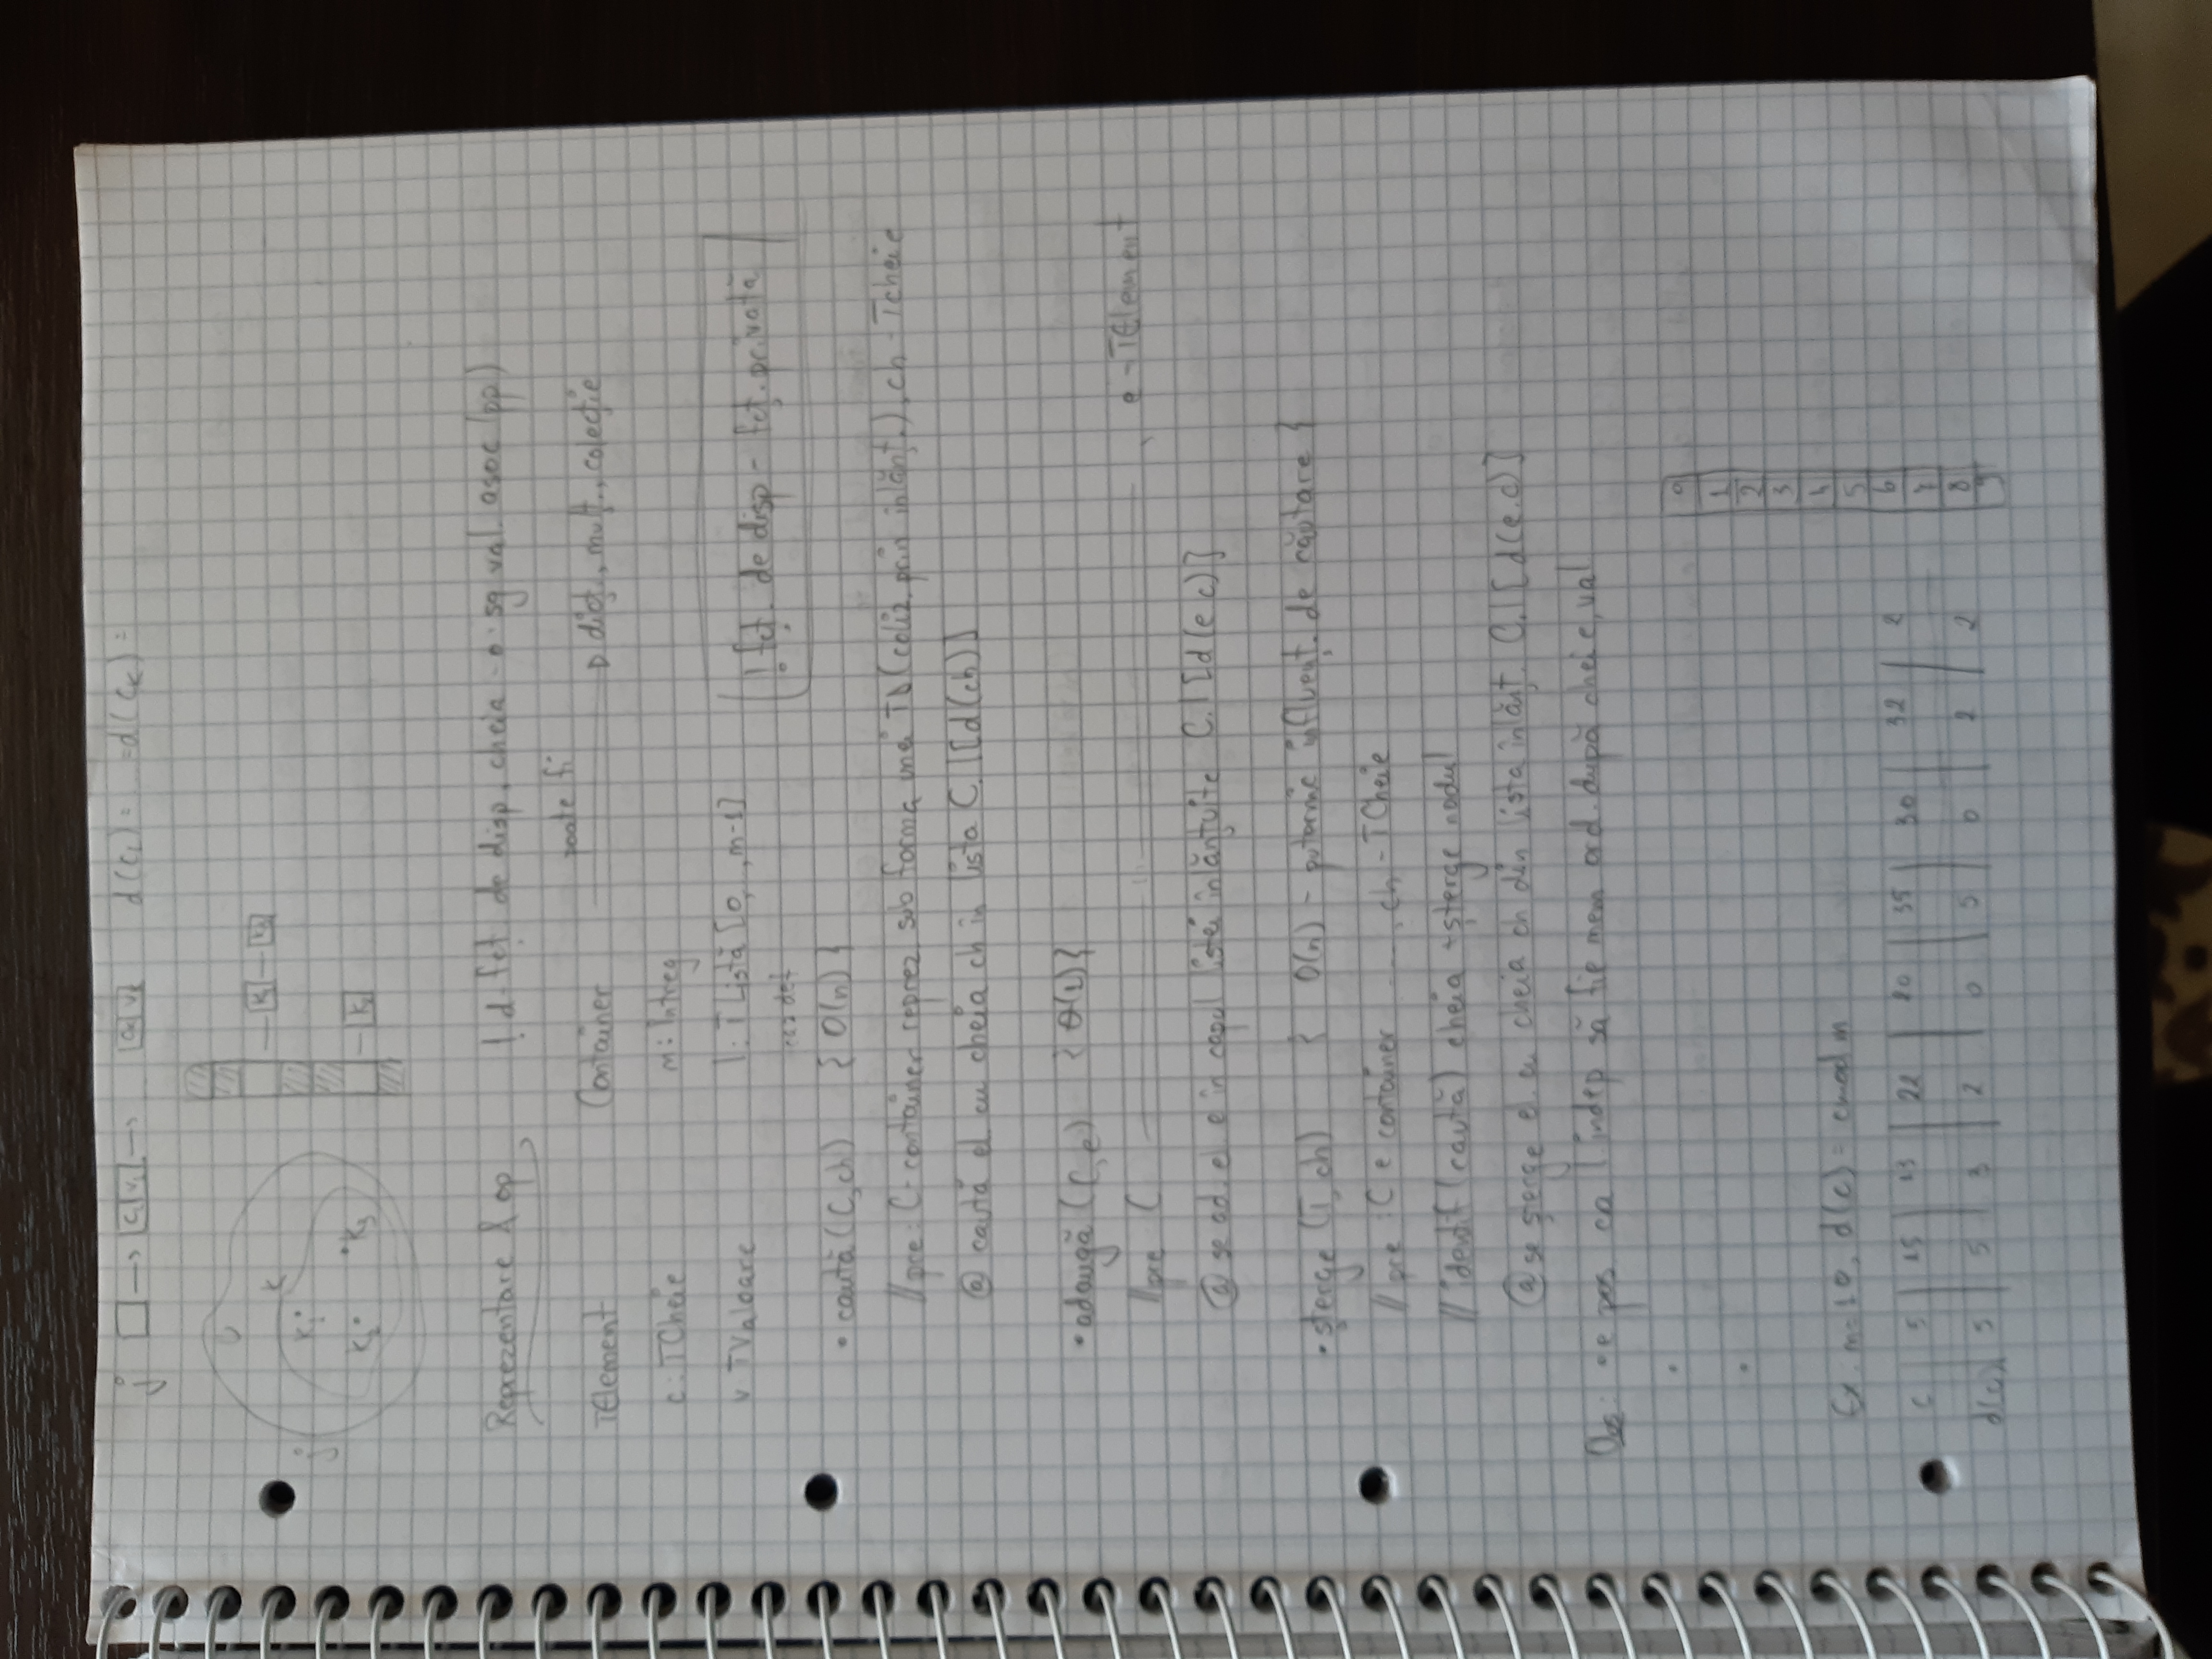 j □ → C1 V1 → Ck Vk d(c1) = ... = d(ck) =
U
K
j K1 K1 K3
K2 K3 K2
Reprezentare & op ! d - fcț de disp, cheia - o sg val. asoc (pp)
poate fi
TElement Container dicț., mulț., colecție
c: TCheie m: Întreg
v TValoare l: TListă [0, , m-1] ! fcț. de disp - fcț. privată
caz def
• caută (C, ch) { O(n) }
// pre: C - container reprez sub forma unei TD (coliz. prin înlănț.), ch - Tcheie
@ caută el cu cheia ch în lista C.l[d(ch)]
• adaugă (C, e) { θ(1) }
// pre C —— 11 ——, e - TElement
@ se ad. el e în capul listei înlănțuite C.l[d(e.c)]
• șterge (T, ch) { O(n) - puternic influenț. de căutare }
// pre: C e container ..., ch - TCheie
// identif (caută) cheia + șterge nodul
@ se șterge el. cu cheia ch din lista înlănț. C.l[d(e.c)]
Obs: • e pos ca l. indep să fie mem ord. după cheie, val
•
•
0
1
2
3
4
5
6
7
8
9
Ex. m=10, d(c) = c mod m
c 5 15 13 22 20 35 30 32 2
d(c) 5 5 3 2 0 5 0 2 2